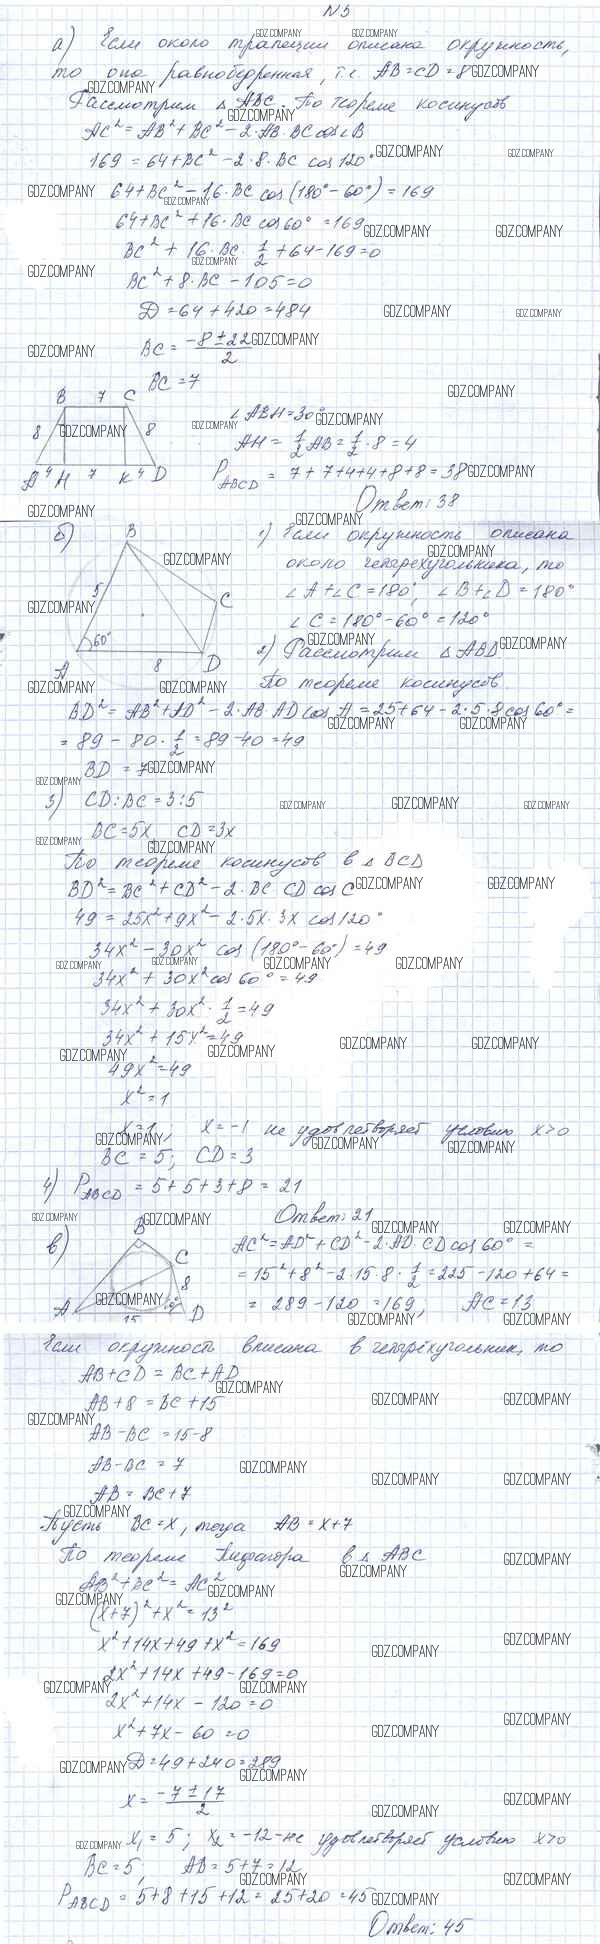 N5
а) Если около трапеции описана окружность,
то она равнобедренная, т.е. AB=CD=8
Рассмотрим △ABC. По теореме косинусов
AC²=AB²+BC²-2·AB·BC cos∠B
169=64+BC²-2·8·BC cos120°
64+BC²-16·BC cos(180°-60°)=169
64+BC²+16·BC cos60°=169
BC²+16·BC·1/2+64-169=0
BC²+8·BC-105=0
D=64+420=484
BC=(-8±22)/2
BC=7
B 7 C
8 8
A 4 H 7 K 4 D
∠ABH=30°
AH=1/2AB=1/2·8=4
P_ABCD=7+7+4+4+8+8=38
Ответ: 38
б)
B
5
C
60°
A 8 D
1) Если окружность описана
около четырехугольника, то
∠A+∠C=180°, ∠B+∠D=180°
∠C=180°-60°=120°
2) Рассмотрим △ABD
По теореме косинусов
BD²=AB²+AD²-2·AB·AD cos A=25+64-2·5·8cos60°=
=89-80·1/2=89-40=49
BD=7
3) CD:BC=3:5
BC=5x CD=3x
По теореме косинусов в △BCD
BD²=BC²+CD²-2·BC·CD cos C
49=25x²+9x²-2·5x·3x cos120°
34x²-30x² cos(180°-60°)=49
34x²+30x²cos60°=49
34x²+30x²·1/2=49
34x²+15x²=49
49x²=49
x²=1
x=1; x=-1 не удовлетворяет условию x>0
BC=5; CD=3
4) P_ABCD=5+5+3+8=21
Ответ: 21
в)
B
C
8
A 15 D
AC²=AD²+CD²-2·AD·CD cos60°=
=15²+8²-2·15·8·1/2=225-120+64=
=289-120=169; AC=13
Если окружность вписана в четырёхугольник, то
AB+CD=BC+AD
AB+8=BC+15
AB-BC=15-8
AB-BC=7
AB=BC+7
Пусть BC=x, тогда AB=x+7
По теореме Пифагора в △ABC
AB²+BC²=AC²
(x+7)²+x²=13²
x²+14x+49+x²=169
2x²+14x+49-169=0
2x²+14x-120=0
x²+7x-60=0
D=49+240=289
x=(-7±17)/2
x₁=5; x₂=-12-не удовлетворяет условию x>0
BC=5; AB=5+7=12
P_ABCD=5+8+15+12=25+20=45
Ответ: 45
GDZ.COMPANY